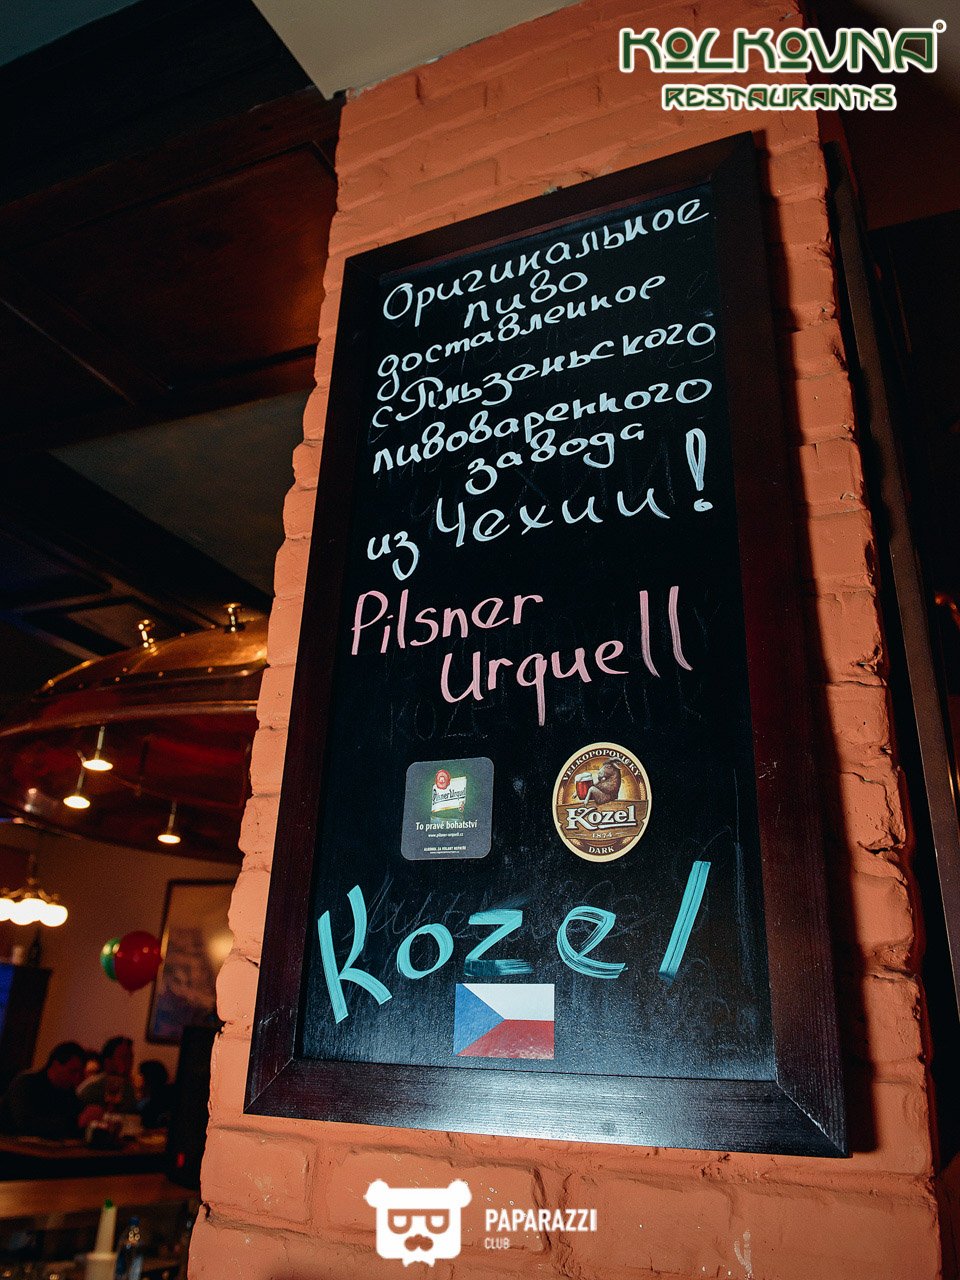 KOLKOVNA
RESTAURANTS
Оригинальное
пиво
доставленное
с Пльзеньского
пивоваренного
завода
из Чехии!
Pilsner
Urquell
Pilsner Urquell
To pravé bohatství
www.pilsner-urquell.cz
VELKOPOPOVICKÝ
Kozel
1874
DARK
Kozel
PAPARAZZI
CLUB